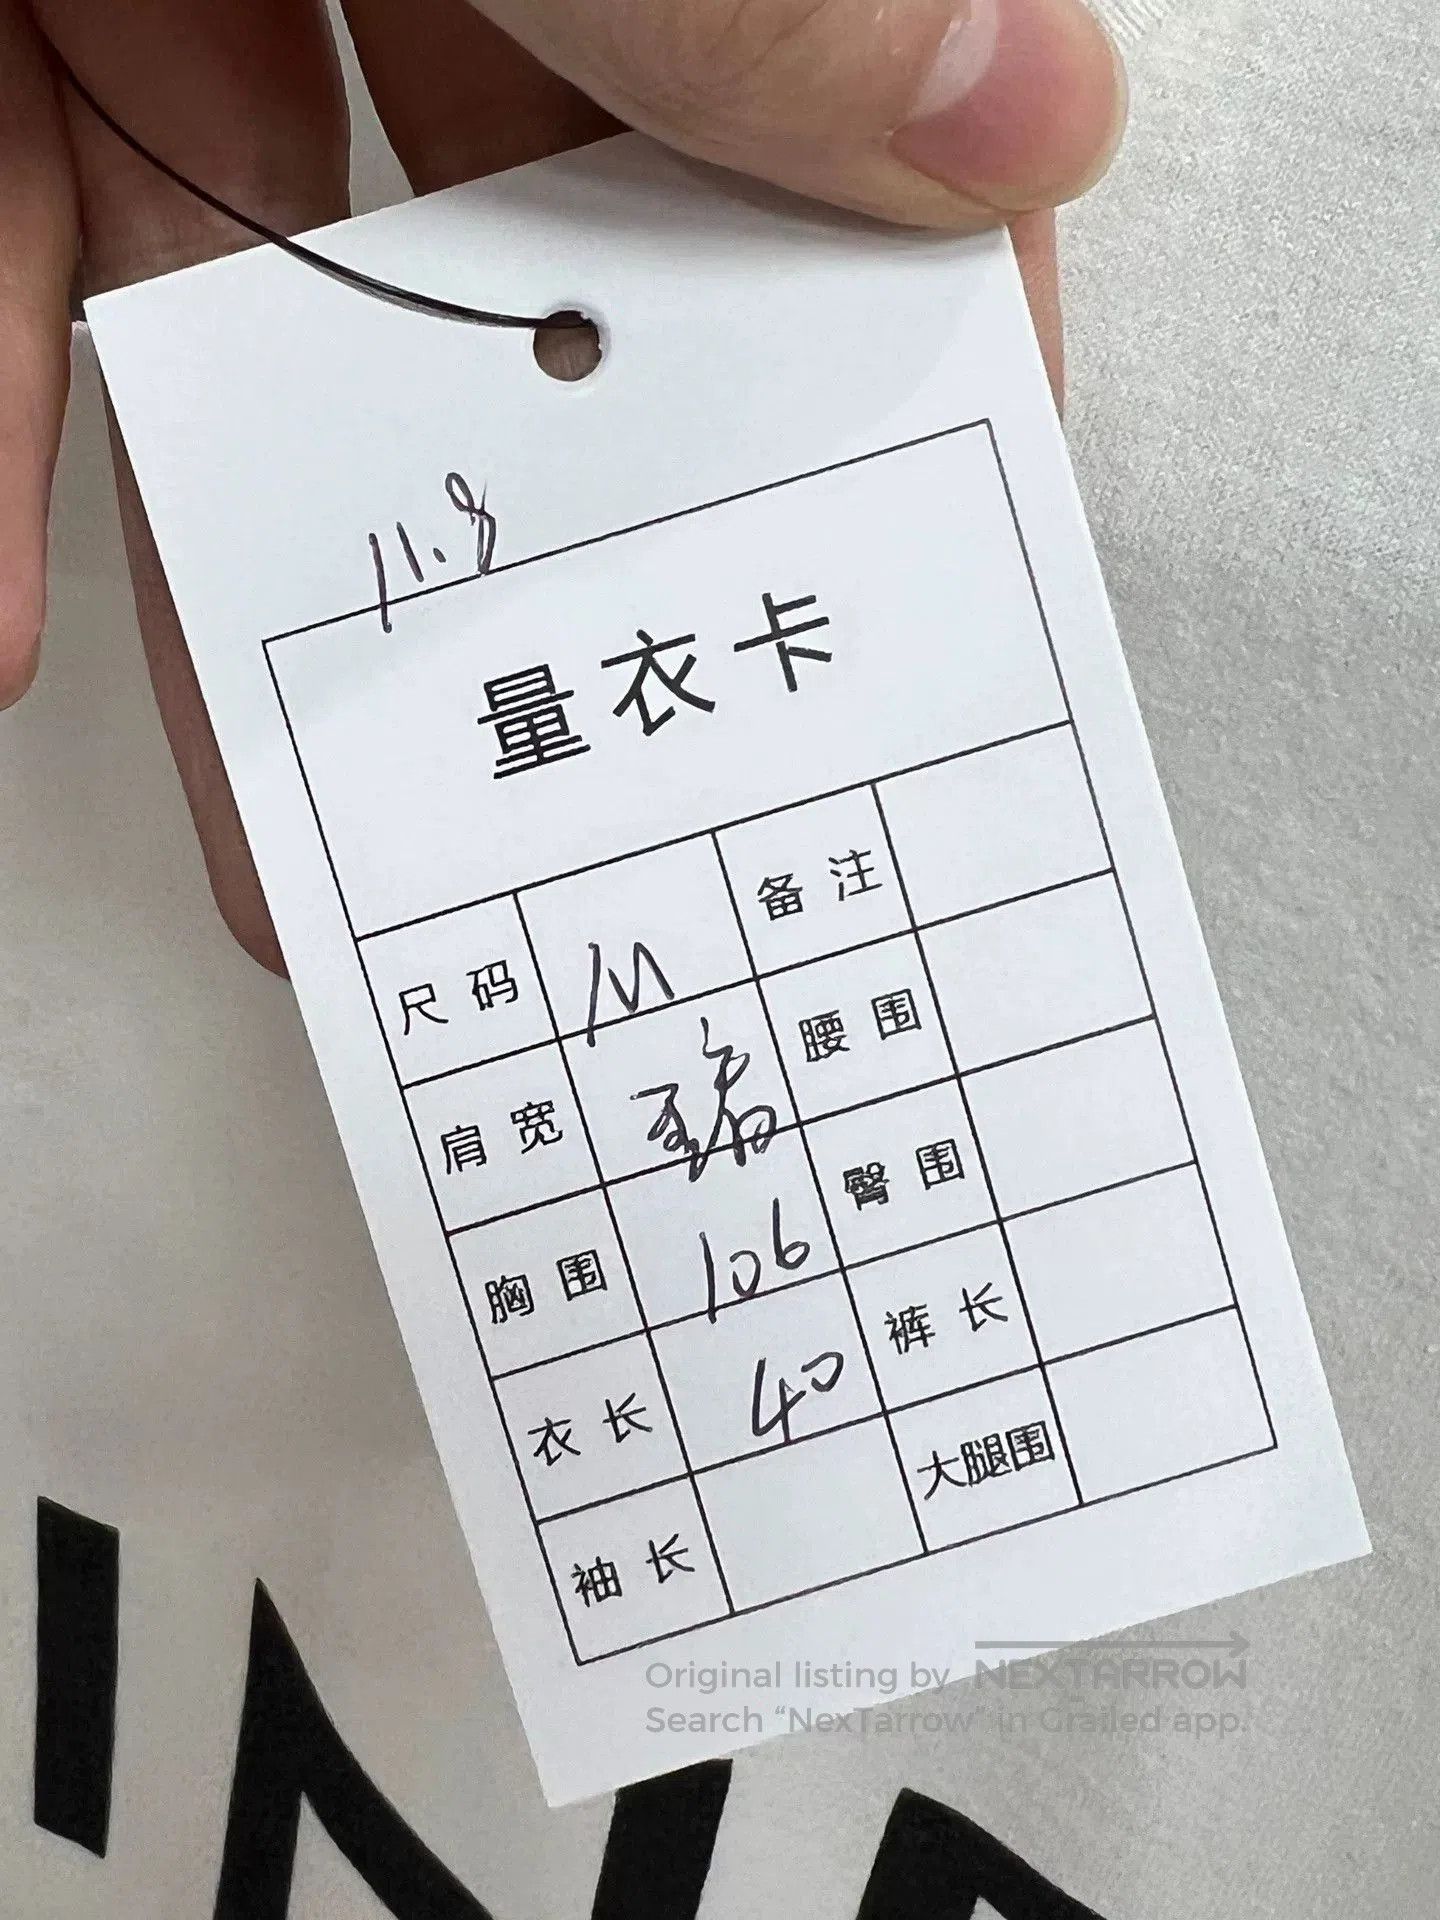 11.8
量衣卡
尺码 M 备注
肩宽 腰围
胸围 106 臀围
衣长 40 裤长
袖长 大腿围
Original listing by NEXTARROW
Search “NexTarrow” in Grailed app.